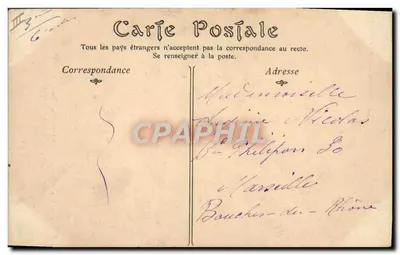 Carte Postale
Tous les pays étrangers n'acceptent pas la correspondance au recto.
Se renseigner à la poste.
Correspondance
Adresse
Mademoiselle
Nicolas
Bd Philipon 30
Marseille
Bouches-du-Rhône
CPAPHIL